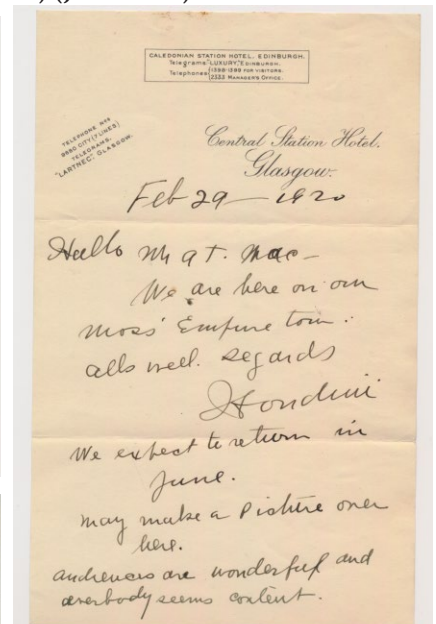 CALEDONIAN STATION HOTEL, EDINBURGH.
Telegrams "LUXURY," EDINBURGH.
Telephones 1398-1399 FOR VISITORS.
2333 MANAGER'S OFFICE.
TELEPHONE Nos
CITY (7 LINES)
TELEGRAMS,
GLASGOW.
Central Station Hotel.
Glasgow.
Feb 29 - 1920
Hello M a T. Mac -
We are here on our
Moss' Empire tour:
alls well. Regards
Houdini
We expect to return in
June.
may make a Picture over
here.
audiences are wonderful and
everbody seems content.